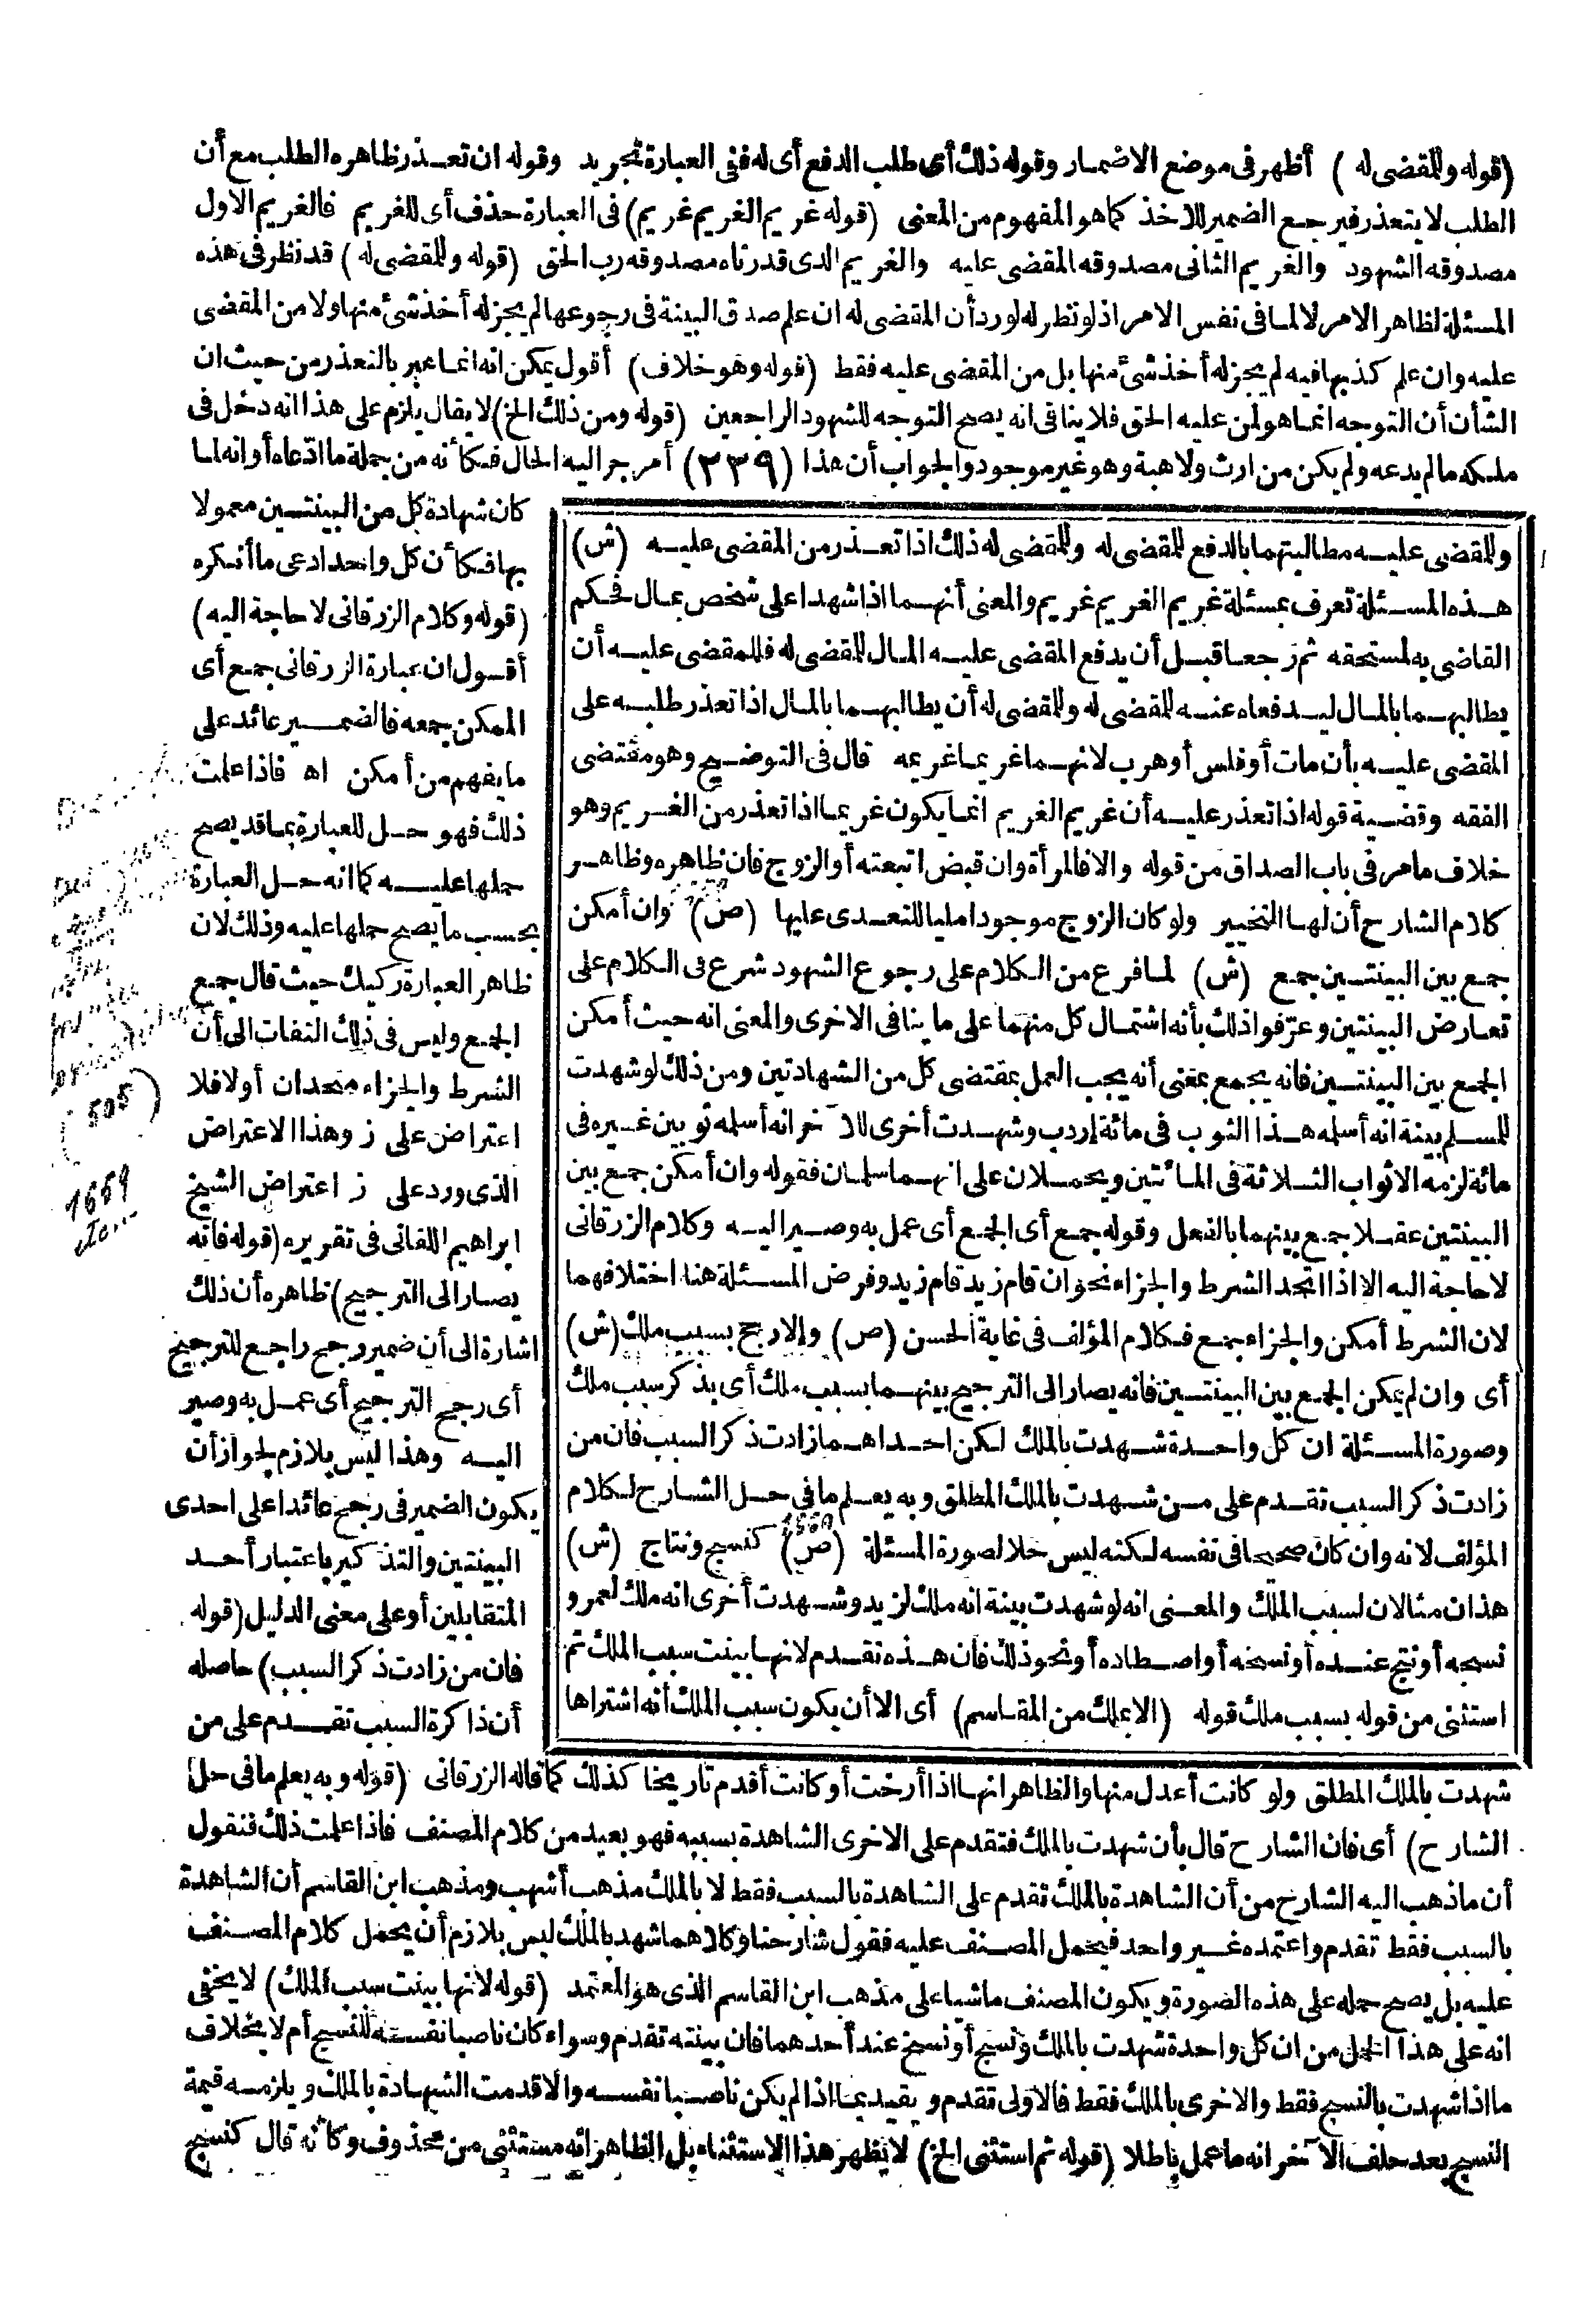 (قوله وللمقضى له) أظهر فى موضع الاضمار وقوله ذلك أى طلب الدفع أى له ففى العبارة تجريد وقوله ان تعذر ظاهره الطلب مع أن
الطلب لا يتعذر فيرجع الضمير للاخذ كما هو المفهوم من المعنى (قوله غريم الغريم غريم) فى العبارة حذف أى للغريم فالغريم الاول
مصدوقه الشهود والغريم الثانى مصدوقه المقضى عليه والغريم الذى قدرناه مصدوقه رب الحق (قوله وللمقضى له) قد نظر فى هذه
المسئلة لظاهر الامر لا لما فى نفس الامر اذ لو نظر له لورد أن المقضى له ان علم صدق البينة فى رجوعها لم يجز له أخذ شئ منها ولا من المقضى
عليه وان علم كذبها فيه لم يجز له أخذ شئ منها بل من المقضى عليه فقط (قوله وهو خلاف) أقول يمكن انه انما عبر بالتعذر من حيث ان
الشأن أن التوجه انما هو لمن عليه الحق فلا ينافى انه يصح التوجه للشهود الراجعين (قوله ومن ذلك الخ) لا يقال يلزم على هذا انه دخل فى
ملكه ما لم يدعه ولم يكن من ارث ولا هبة وهو غير موجود والجواب أن هذا (٣٣٩) أمر جر اليه الحال فكأنه من جملة ما ادعاه أو انه لما
وللمقضى عليه مطالبتهما بالدفع للمقضى له وللمقضى له ذلك اذا تعذر من المقضى عليه (ش)
هذه المسئلة تعرف بمسئلة غريم الغريم غريم والمعنى أنهما اذا شهدا على شخص بمال فحكم
القاضى به لمستحقه ثم رجعا قبل أن يدفع المقضى عليه المال للمقضى له فللمقضى عليه أن
يطالبهما بالمال ليدفعاه عنه للمقضى له وللمقضى له أن يطالبهما بالمال اذا تعذر طلبه على
المقضى عليه بأن مات أو فلس أو هرب لانهما غريما غريمه قال فى التوضيح وهو مقتضى
الفقه وقضية قوله اذا تعذر عليه أن غريم الغريم انما يكون غريما اذا تعذر من الغريم وهو
خلاف ما مر فى باب الصداق من قوله والا فالمرأة وان قبض اتبعته أو الزوج فان ظاهره وظاهر
كلام الشارح أن لها التخيير ولو كان الزوج موجودا مليا للتعدى عليها (ص) وان أمكن
جمع بين البينتين جمع (ش) لما فرغ من الكلام على رجوع الشهود شرع فى الكلام على
تعارض البينتين وعرفوا ذلك بأنه اشتمال كل منهما على ما ينافى الاخرى والمعنى انه حيث أمكن
الجمع بين البينتين فانه يجمع بمعنى أنه يجب العمل بمقتضى كل من الشهادتين ومن ذلك لو شهدت
للمسلم بينة انه أسلمه هذا الثوب فى مائة إردب وشهدت أخرى للآخر انه أسلمه ثوبين غيره فى
مائة لزمه الاثواب الثلاثة فى المائتين ويحملان على انهما سلمان فقوله وان أمكن جمع بين
البينتين عقلا جمع بينهما بالفعل وقوله جمع أى الجمع أى عمل به وصير اليه وكلام الزرقانى
لا حاجة اليه الا اذا اتحد الشرط والجزاء نحو ان قام زيد قام زيد وفرض المسئلة هنا اختلافهما
لان الشرط أمكن والجزاء جمع فكلام المؤلف فى غاية الحسن (ص) وإلا رجح بسبب ملك (ش)
أى وان لم يمكن الجمع بين البينتين فانه يصار الى الترجيح بينهما بسبب ملك أى بذكر سبب ملك
وصورة المسئلة ان كل واحدة شهدت بالملك لكن احداهما زادت ذكر السبب فان من
زادت ذكر السبب تقدم على من شهدت بالملك المطلق وبه يعلم ما فى حل الشارح لكلام
المؤلف لانه وان كان صحيحا فى نفسه لكنه ليس حلا لصورة المسئلة (ص) كنسج ونتاج (ش)
هذان مثالان لسبب الملك والمعنى انه لو شهدت بينة انه ملك لزيد وشهدت أخرى انه ملك لعمرو
نسجه أو نتج عنده أو نسخه أو اصطاده أو نحو ذلك فان هذه تقدم لانها بينت سبب الملك ثم
استثنى من قوله بسبب ملك قوله (الا بملك من المقاسم) أى الا أن يكون سبب الملك أنه اشتراها
كان شهادة كل من البينتين معمولا
بها فكأن كل واحد ادعى ما أنكره
(قوله وكلام الزرقانى لا حاجة اليه)
أقول ان عبارة الزرقانى جمع أى
الممكن جمعه فالضمير عائد على
ما يفهم من أمكن اه فاذا علمت
ذلك فهو حل للعبارة بما قد يصح
حملها عليه كما انه حل العبارة
بحسب ما يصح حملها عليه وذلك لان
ظاهر العبارة ركيك حيث قال جمع
الجمع وليس فى ذلك التفات الى أن
الشرط والجزاء متحدان أولا فلا
اعتراض على ز وهذا الاعتراض
الذى ورد على ز اعتراض الشيخ
ابراهيم اللقانى فى تقريره (قوله فانه
يصار الى الترجيح) ظاهره أن ذلك
اشارة الى أن ضمير رجح راجع للترجيح
أى رجح الترجيح أى عمل به وصير
اليه وهذا ليس بلازم لجواز أن
يكون الضمير فى رجح عائدا على احدى
البينتين والتذكير باعتبار أحد
المتقابلين أو على معنى الدليل (قوله
فان من زادت ذكر السبب) حاصله
أن ذاكرة السبب تقدم على من
شهدت بالملك المطلق ولو كانت أعدل منها والظاهر انها اذا أرخت أو كانت أقدم تاريخا كذلك كما قاله الزرقانى (قوله وبه يعلم ما فى حل
الشارح) أى فان الشارح قال بأن شهدت بالملك فتقدم على الاخرى الشاهدة بسببه فهو بعيد من كلام المصنف فاذا علمت ذلك فنقول
أن ما ذهب اليه الشارح من أن الشاهدة بالملك تقدم على الشاهدة بالسبب فقط لا بالملك مذهب أشهب ومذهب ابن القاسم أن الشاهدة
بالسبب فقط تقدم واعتمده غير واحد فيحمل المصنف عليه فقول شارحنا وكلاهما شهد بالملك ليس بلازم أن يحمل كلام المصنف
عليه بل يصح حمله على هذه الصورة ويكون المصنف ماشيا على مذهب ابن القاسم الذى هو المعتمد (قوله لانها بينت سبب الملك) لا يخفى
انه على هذا الحل من ان كل واحدة شهدت بالملك ونسج أو نسخ عند أحدهما فان بينته تقدم وسواء كان ناصبا نفسه للنسج أم لا بخلاف
ما اذا شهدت بالنسج فقط والاخرى بالملك فقط فالاولى تقدم ويقيد بما اذا لم يكن ناصبا نفسه والا قدمت الشهادة بالملك ويلزمه قيمة
النسج بعد حلف الآخر انه ما عمل باطلا (قوله ثم استثنى الخ) لا يظهر هذا الاستثناء بل الظاهر انه مستثنى من محذوف وكأنه قال كنسج
(505)
1669
1669